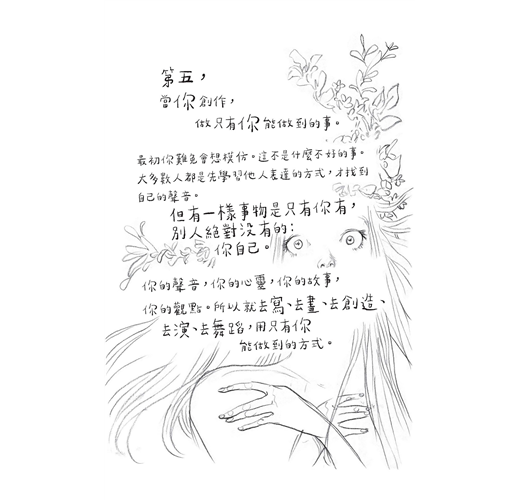 第五，
當你創作，
做只有你能做到的事。
最初你難免會想模仿。這不是什麼不好的事。
大多數人都是先學習他人表達的方式，才找到
自己的聲音。
但有一樣事物是只有你有，
別人絕對沒有的：
你自己。
你的聲音，你的心靈，你的故事，
你的觀點。所以就去寫、去畫、去創造、
去演、去舞蹈，用只有你
能做到的方式。